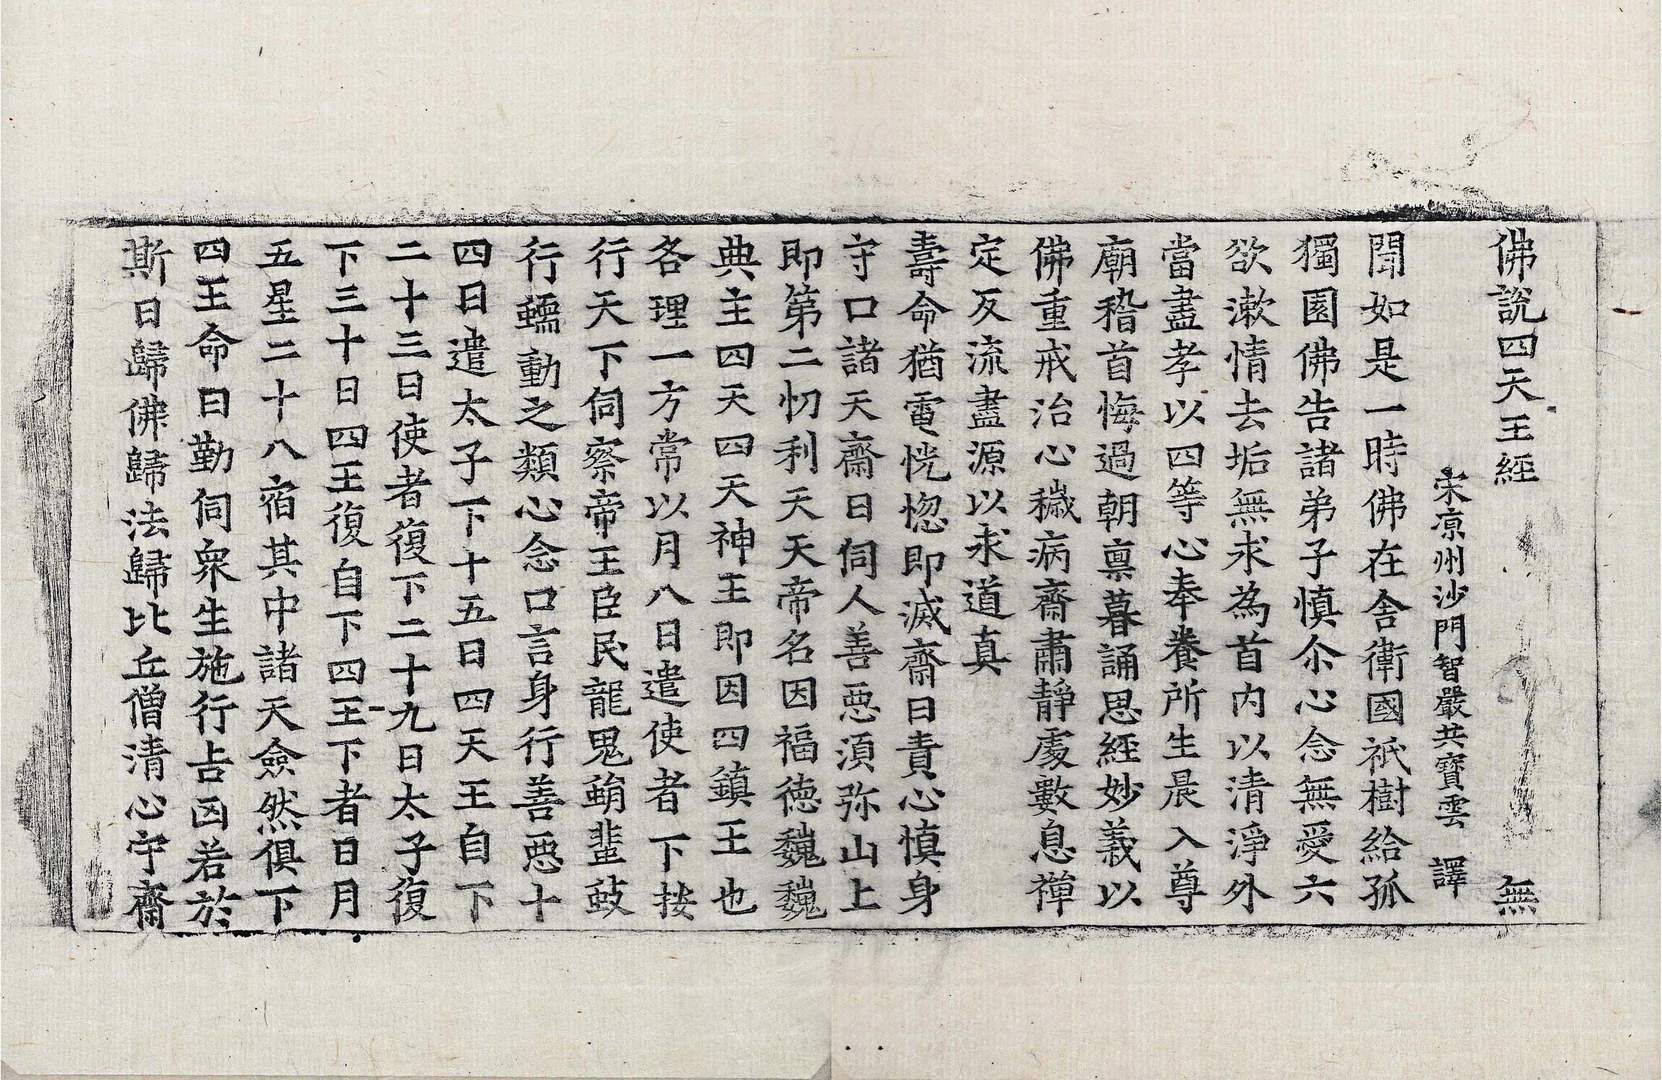 佛說四天王經　無
宋涼州沙門智嚴共寶雲　譯
聞如是一時佛在舍衛國祇樹給孤
獨園佛告諸弟子慎尒心念無愛六
欲漱情去垢無求為首内以清淨外
當盡孝以四等心奉養所生晨入尊
廟稽首悔過朝禀暮誦思經妙義以
佛重戒治心穢病齋肅靜處數息禪
定反流盡源以求道真
壽命猶電恍惚即滅齋日責心慎身
守口諸天齋日伺人善惡須弥山上
即第二忉利天天帝名因福徳巍巍
典主四天四天神王即因四鎮王也
各理一方常以月八日遣使者下按
行天下伺察帝王臣民龍鬼蜎蜚蚑
行蠕動之類心念口言身行善惡十
四日遣太子下十五日四天王自下
二十三日使者復下二十九日太子復
下三十日四王復自下四王下者日月
五星二十八宿其中諸天僉然俱下
四王命曰勤伺衆生施行吉凶若於
斯日歸佛歸法歸比丘僧清心守齋